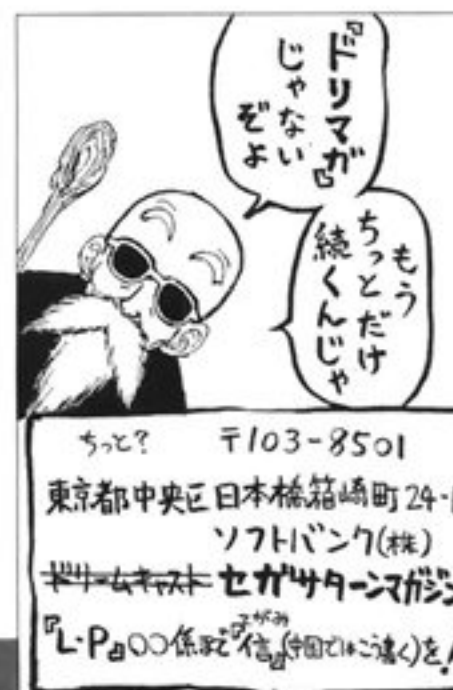 『ドリマガ』
じゃない
ぞよ
もう
ちっとだけ
続くんじゃ
ちっと?
〒103-8501
東京都中央区日本橋箱崎町24-1
ソフトバンク(株)
ドリームキャスト セガサターンマガジン
『L・P』○○係まで『信』(中国ではこう書く)を!
てがみ